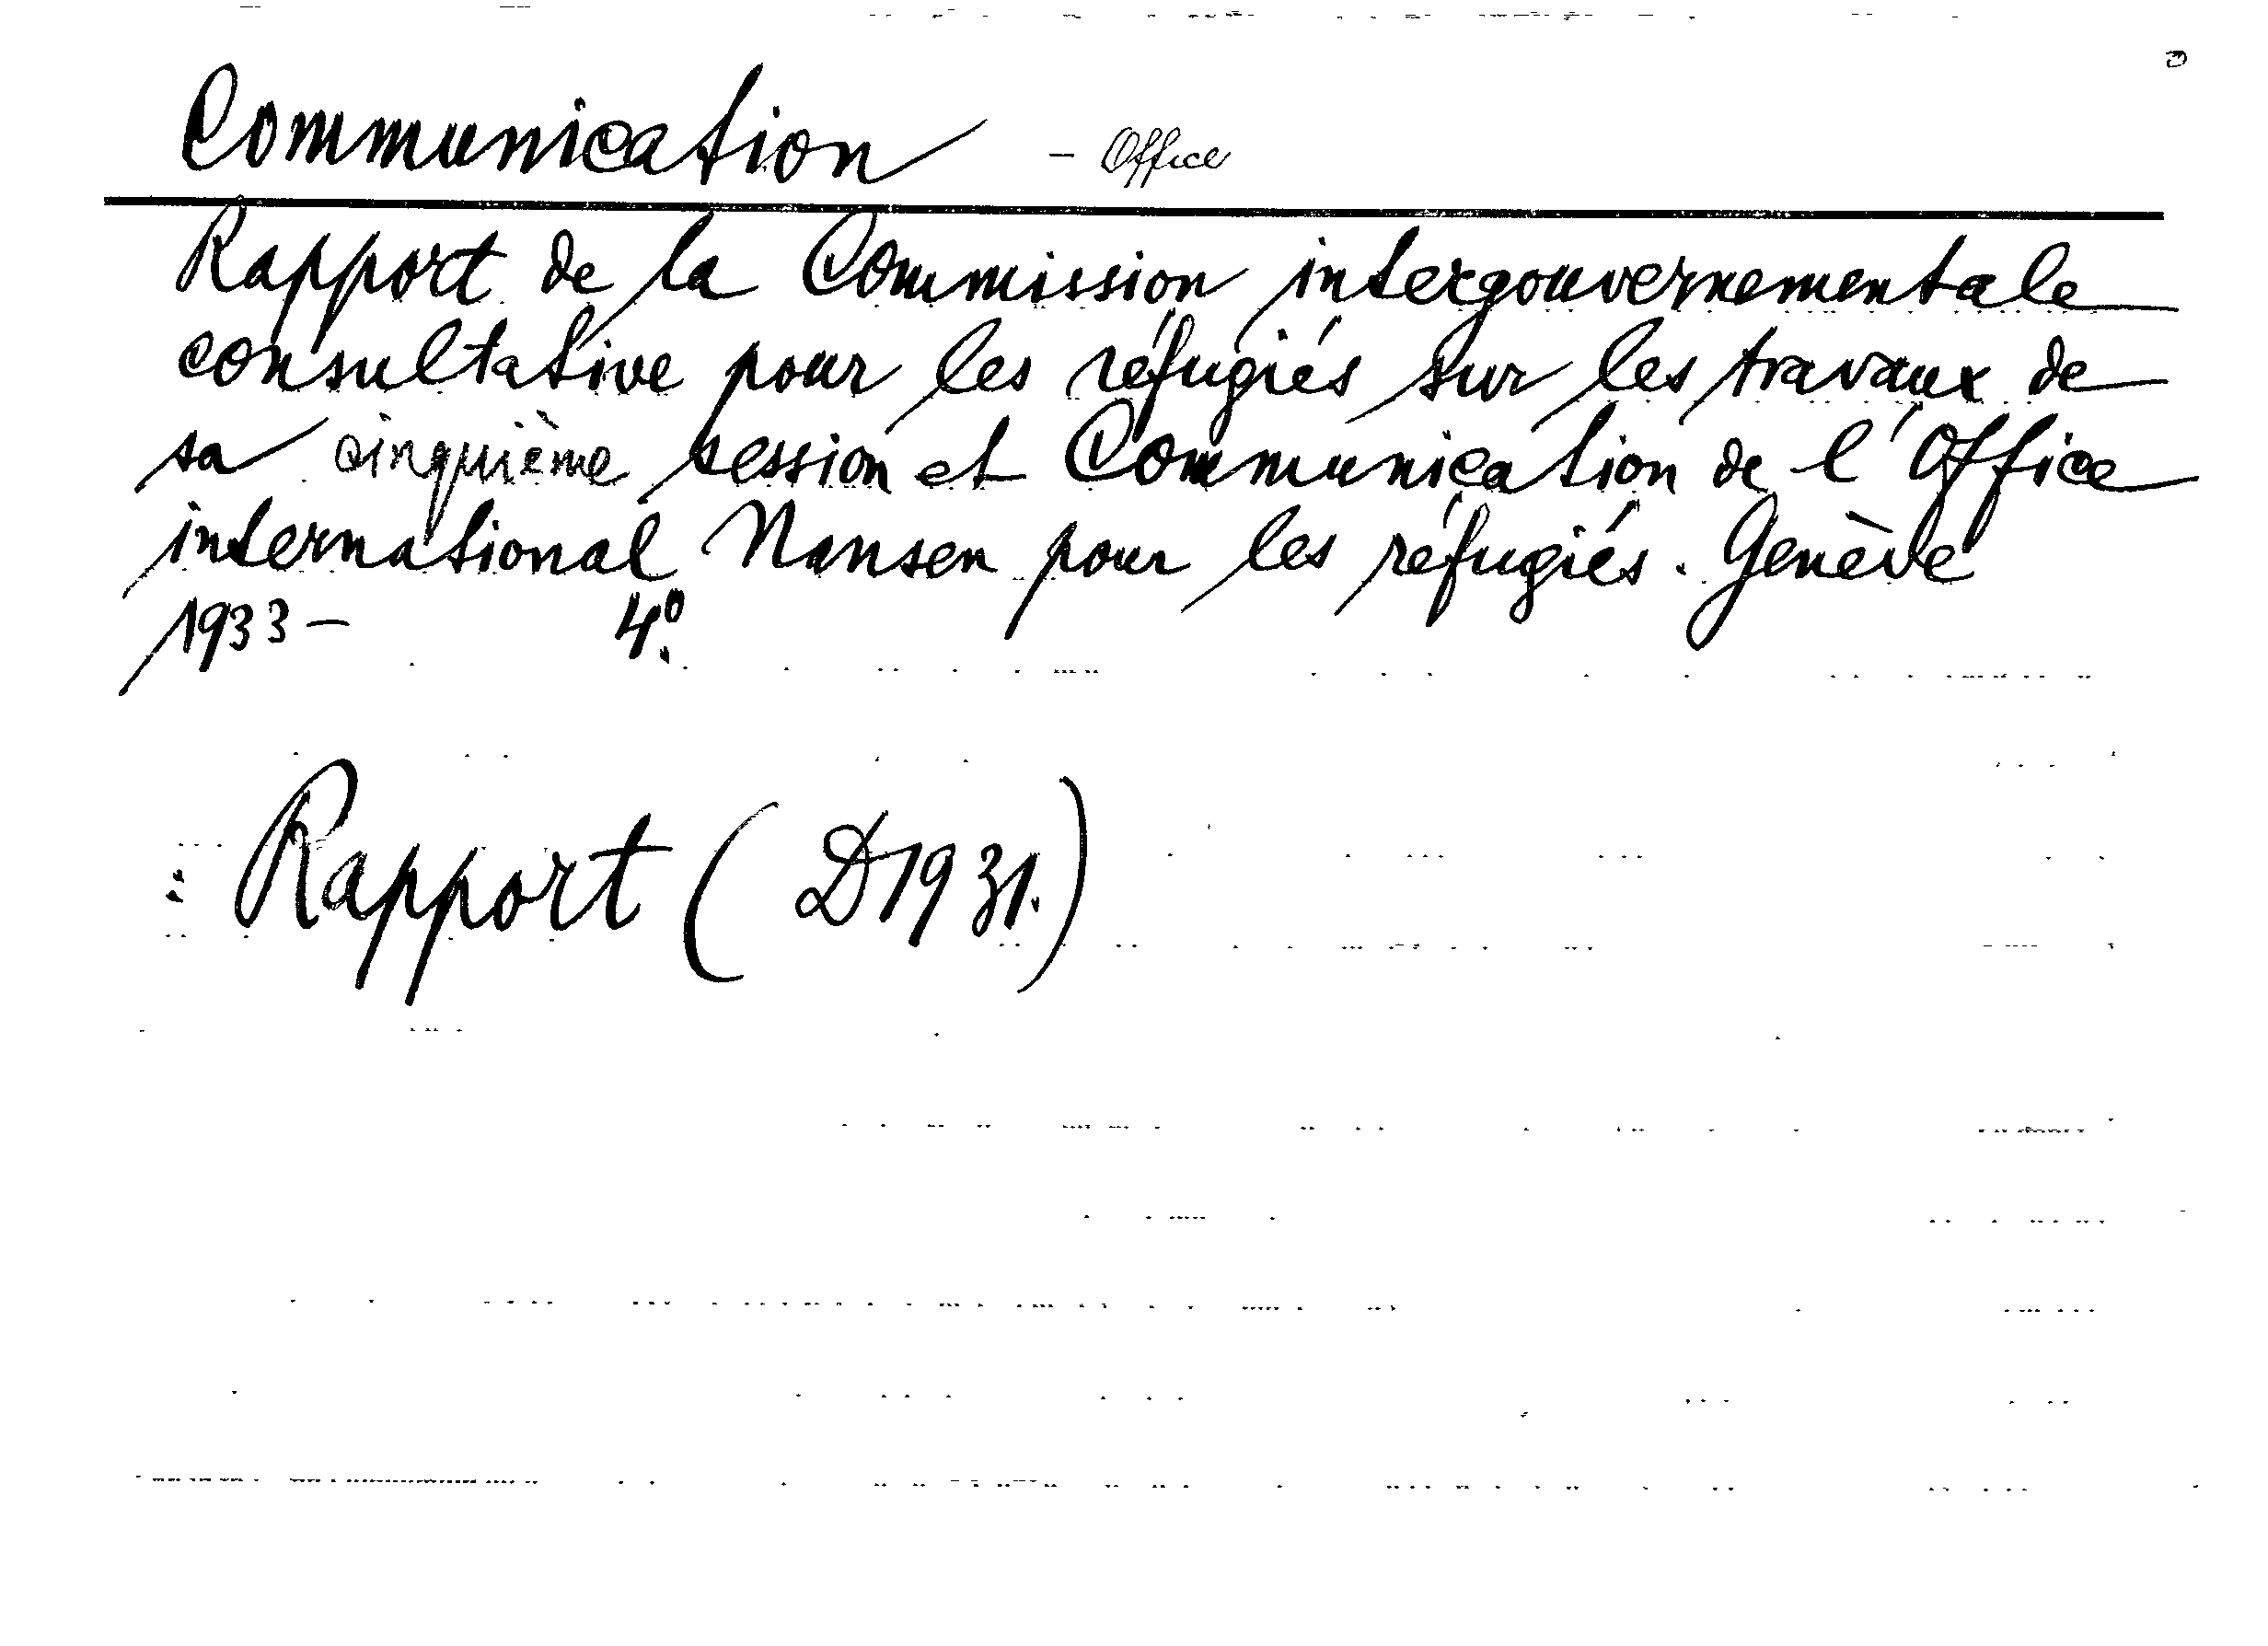 Communication - Office
Rapport de la Commission intergouvernementale
consultative pour les réfugiés sur les travaux de
sa cinquième session et Communication de l'Office
international Nansen pour les réfugiés. Genève
1933- 4º.
: Rapport ( D1931.)